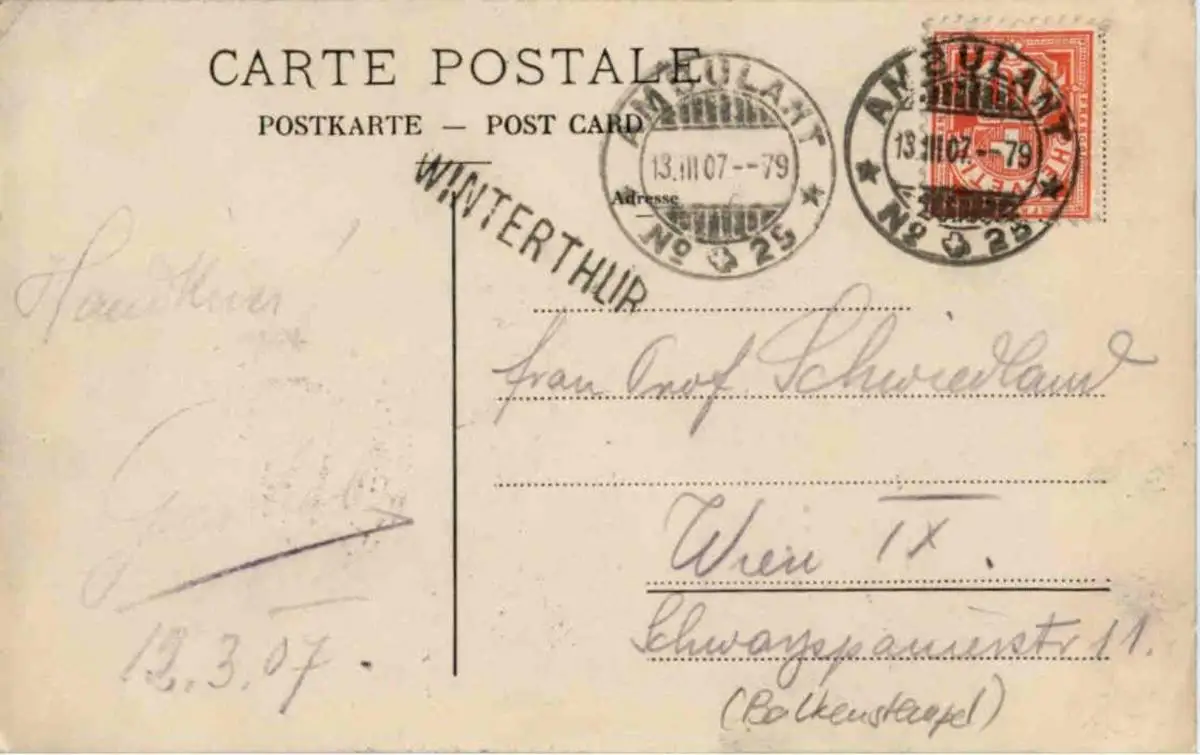 CARTE POSTALE
POSTKARTE — POST CARD
Adresse
WINTERTHUR
AMBULANT
13.III 07.--79
No 25
AMBULANT
13.III 07.--79
No 25
HELVETIA
Frau Prof Schwiedland
Wien IX.
Schwarzspanierstr 11.
(Balkenstempel)
12.3.07.